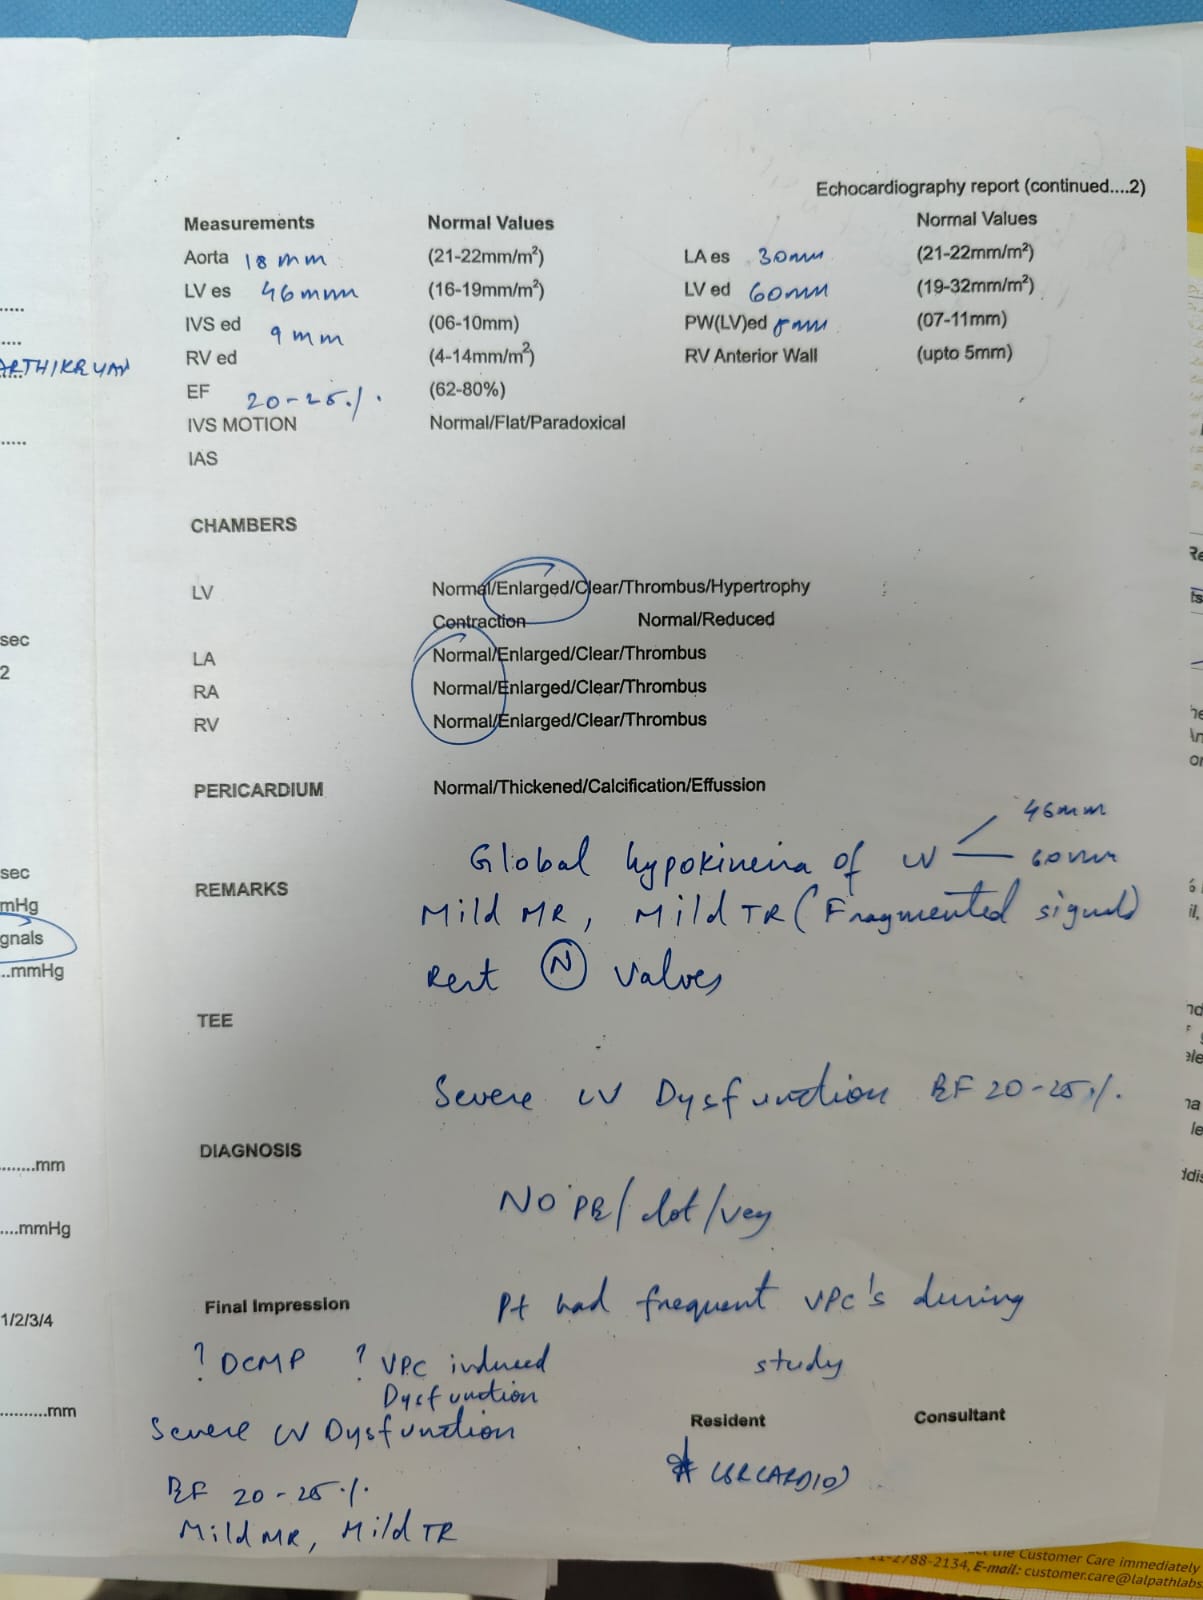 Echocardiography report (continued....2)
Measurements Normal Values Normal Values
Aorta 18 mm (21-22mm/m²) LA es 30mm (21-22mm/m²)
LV es 46mm (16-19mm/m²) LV ed 60mm (19-32mm/m²)
IVS ed 9 mm (06-10mm) PW(LV)ed 8mm (07-11mm)
RV ed (4-14mm/m²) RV Anterior Wall (upto 5mm)
EF 20-25% (62-80%)
IVS MOTION Normal/Flat/Paradoxical
IAS
CHAMBERS
LV Normal/Enlarged/Clear/Thrombus/Hypertrophy
Contraction Normal/Reduced
LA Normal/Enlarged/Clear/Thrombus
RA Normal/Enlarged/Clear/Thrombus
RV Normal/Enlarged/Clear/Thrombus
PERICARDIUM Normal/Thickened/Calcification/Effussion
46mm
Global hypokinesia of LV 60mm
REMARKS
Mild MR, Mild TR (Fragmented signal)
Rest N Valves
TEE
Severe LV Dysfunction EF 20-25%.
DIAGNOSIS
NO PE/clot/veg
Final Impression Pt had frequent VPC's during
study
? DCMP ? VPC induced
Dysfunction
Severe LV Dysfunction
Resident Consultant
(SR CARDIO)
EF 20-25%.
Mild MR, Mild TR
sec
2
sec
mHg
gnals
...mmHg
........mm
....mmHg
1/2/3/4
..........mm
the Customer Care immediately
11-2788-2134, E-mail: customer.care@lalpathlabs